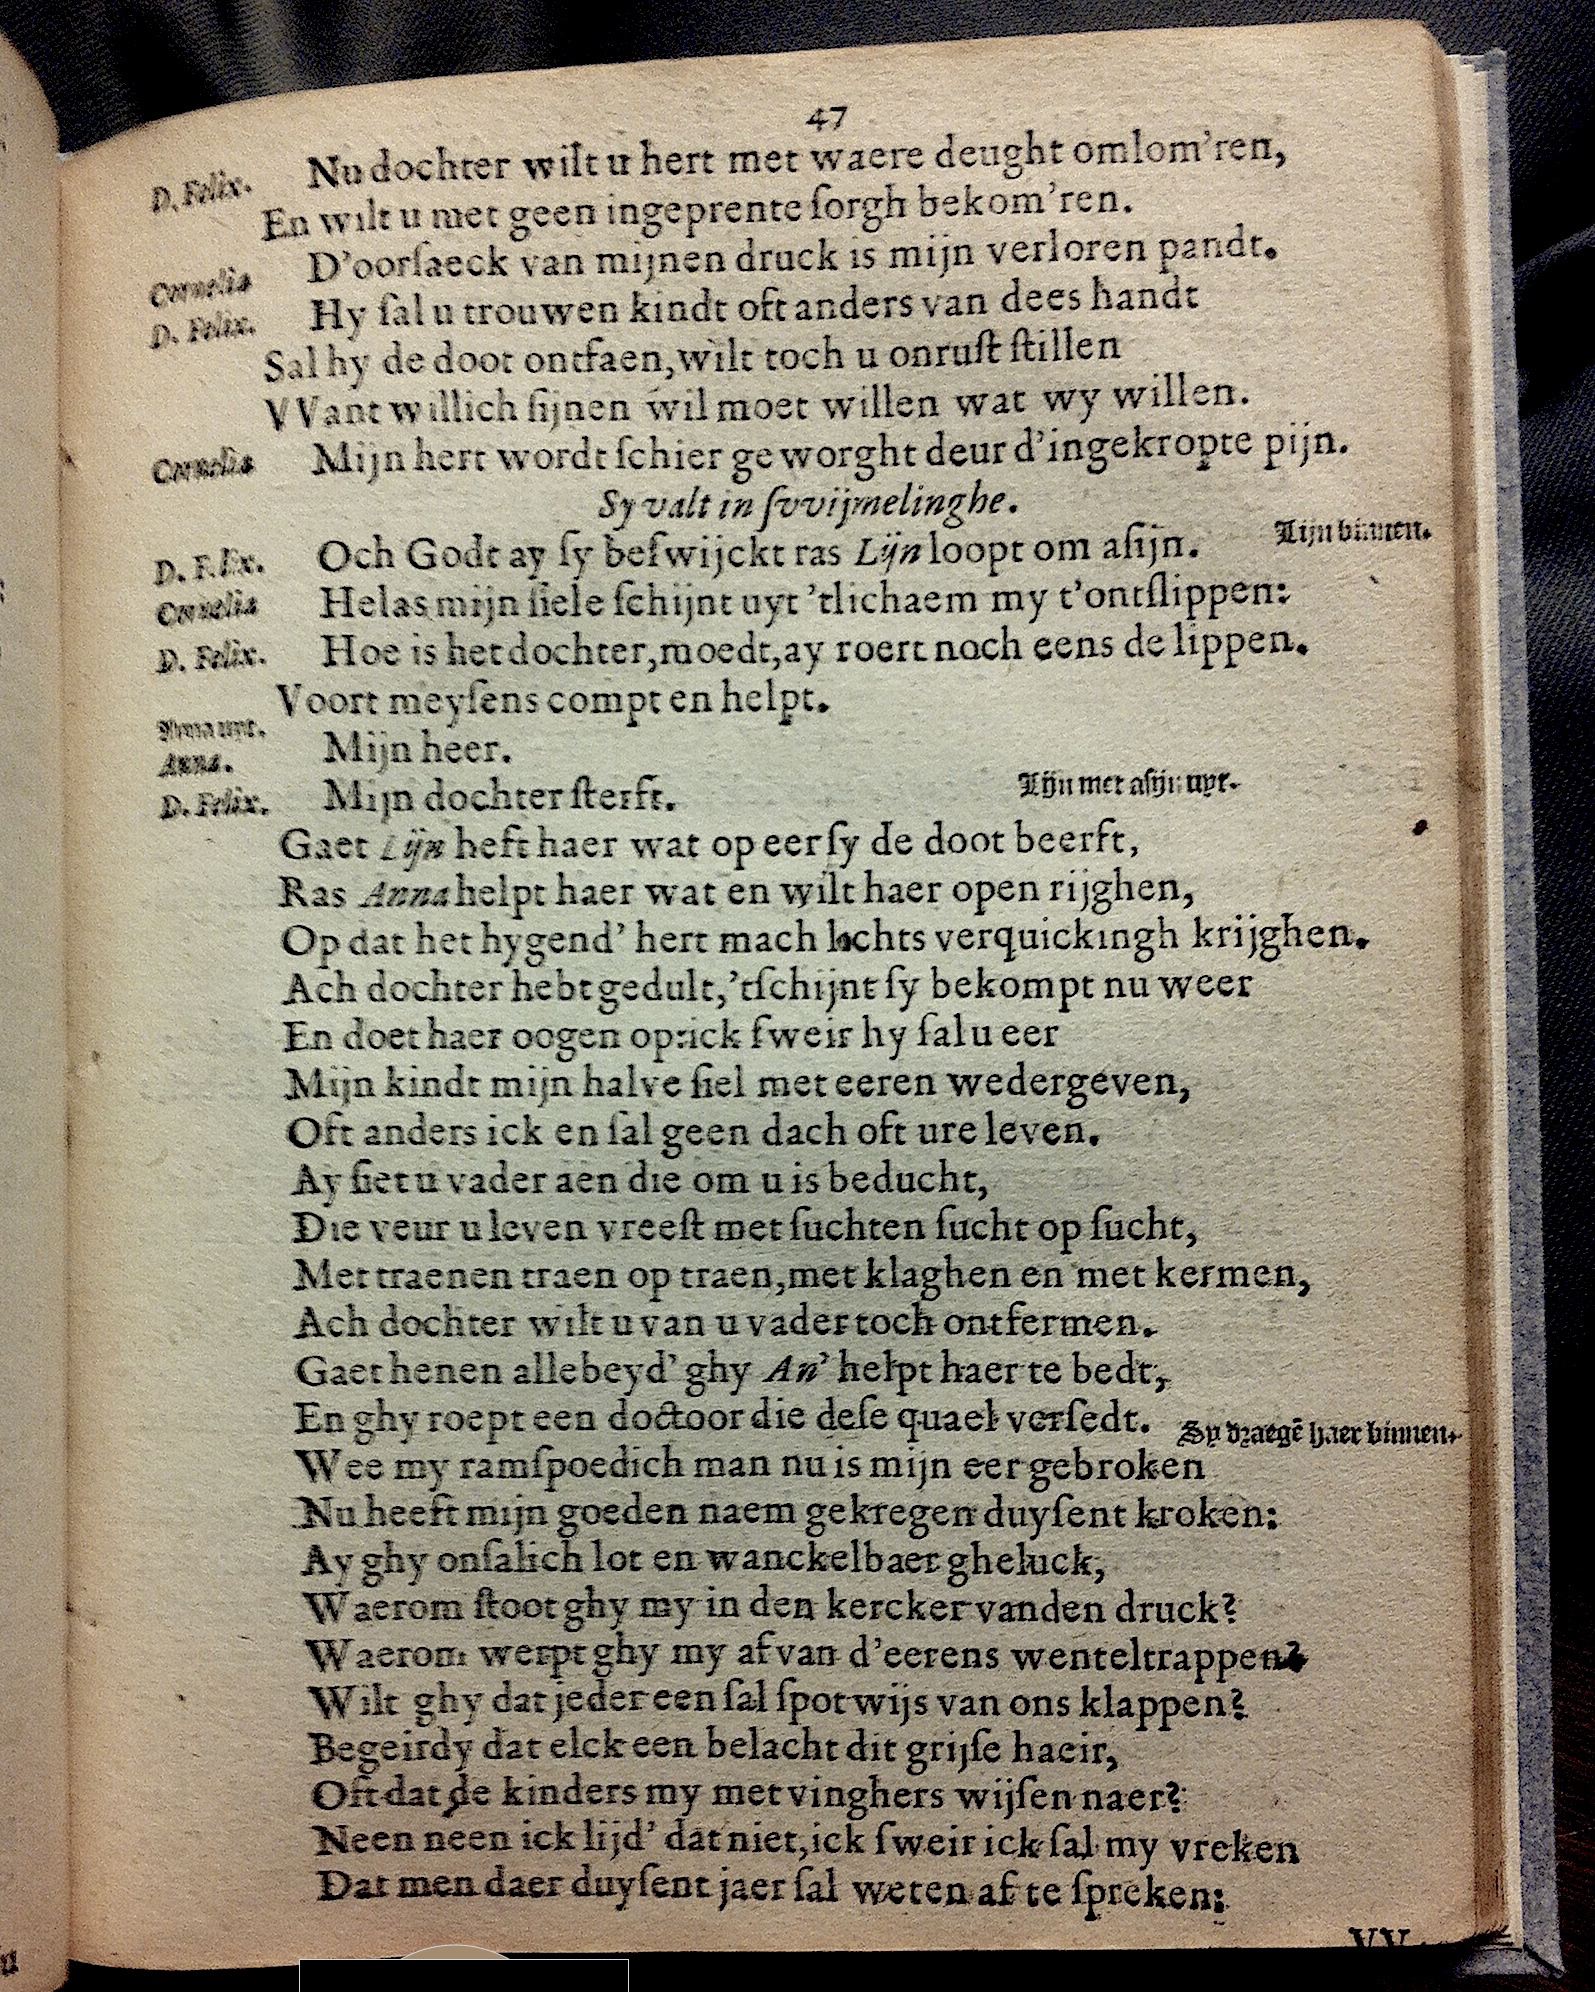 47
D. Felix. Nu dochter wilt u hert met waere deught omlom'ren,
En wilt u met geen ingeprente ſorgh bekom'ren.
Cornelia D'oorſaeck van mijnen druck is mijn verloren pandt.
D. Felix. Hy ſal u trouwen kindt oft anders van dees handt
Sal hy de doot ontfaen, wilt toch u onruſt ſtillen
VVant willich ſijnen wil moet willen wat wy willen.
Cornelia Mijn hert wordt ſchier geworght deur d'ingekropte pijn.
Sy valt in ſvvijmelinghe.
D. Felix. Och Godt ay ſy beſwijckt ras Lijn loopt om aſijn. Lijn binnen.
Cornelia Helas mijn ſiele ſchijnt uyt 'tlichaem my t'ontſlippen:
D. Felix. Hoe is het dochter, moedt, ay roert noch eens de lippen.
Voort meyſens compt en helpt.
Anna uyt.
Anna. Mijn heer.
D. Felix. Mijn dochter ſterft. Lijn met aſijn uyt.
Gaet Lijn heft haer wat op eer ſy de doot beerft,
Ras Anna helpt haer wat en wilt haer open rijghen,
Op dat het hygend' hert mach lochts verquickingh krijghen.
Ach dochter hebt gedult, 'tſchijnt ſy bekompt nu weer
En doet haer oogen op: ick ſweir hy ſal u eer
Mijn kindt mijn halve ſiel met eeren wedergeven,
Oft anders ick en ſal geen dach oft ure leven.
Ay ſiet u vader aen die om u is beducht,
Die veur u leven vreeſt met ſuchten ſucht op ſucht,
Met traenen traen op traen, met klaghen en met kermen,
Ach dochter wilt u van u vader toch ontfermen.
Gaet henen allebeyd' ghy An' helpt haer te bedt,
En ghy roept een doctoor die deſe quael verſedt. Sy draegē haer binnen.
Wee my ramſpoedich man nu is mijn eer gebroken
Nu heeft mijn goeden naem gekregen duyſent kroken:
Ay ghy onſalich lot en wanckelbaer gheluck,
Waerom ſtoot ghy my in den kercker vanden druck?
Waerom werpt ghy my af van d'eerens wenteltrappen?
Wilt ghy dat jeder een ſal ſpotwijs van ons klappen?
Begeirdy dat elck een belacht dit grijſe haeir,
Oft dat de kinders my met vinghers wijſen naer?
Neen neen ick lijd' dat niet, ick ſweir ick ſal my vreken
Dat men daer duyſent jaer ſal weten af te ſpreken: